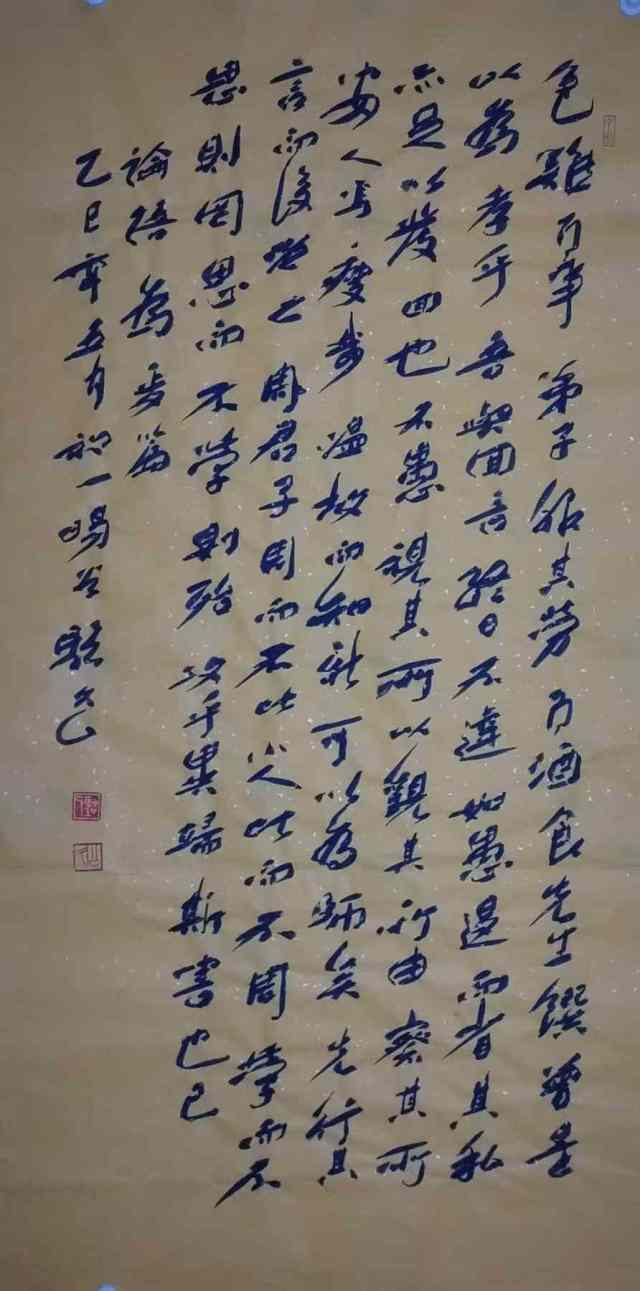 色難有事弟子服其勞有酒食先生饌曾是
以為孝乎吾與回言終日不違如愚退而省其私
亦足以發回也不愚視其所以觀其所由察其所
安人焉廋哉溫故而知新可以為師矣先行其
言而後從之周君子周而不比小人比而不周學而不
思則罔思而不學則殆攻乎異端斯害也已
論語為政篇
乙巳年五月初一